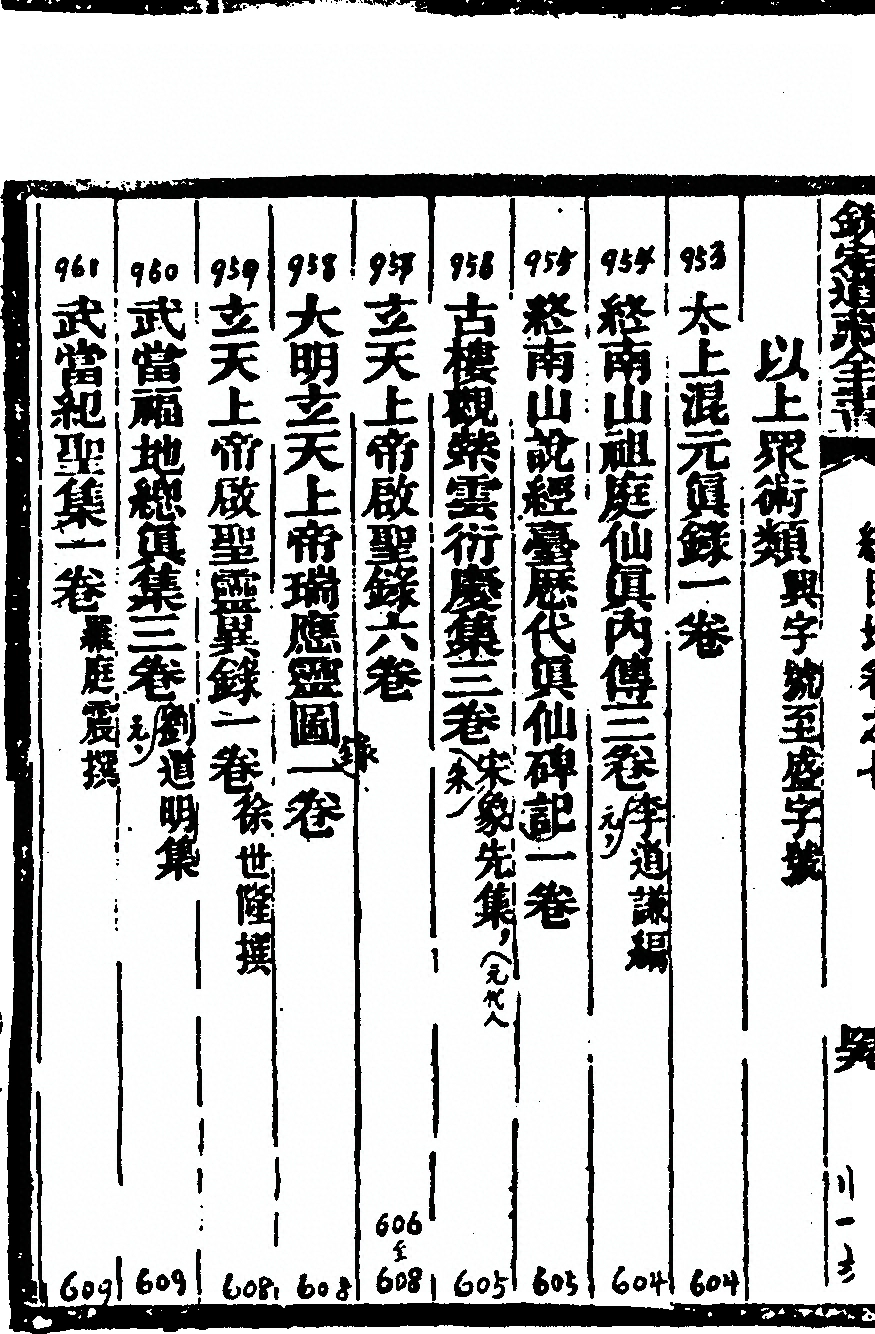 以上眾術類 興字號至盛字號
953 太上混元眞錄一卷 604
954 終南山祖庭仙眞內傳三卷 李道謙編 元 604
955 終南山說經臺歷代眞仙碑記一卷 605
956 古樓觀紫雲衍慶集三卷 宋 朱象先集，(元代人 605
957 玄天上帝啟聖錄六卷 606至608
958 大明玄天上帝瑞應靈圖一卷 錄 608
959 玄天上帝啟聖靈異錄一卷 徐世隆撰 608
960 武當福地總眞集三卷 劉道明集 元 609
961 武當紀聖集一卷 羅庭震撰 609